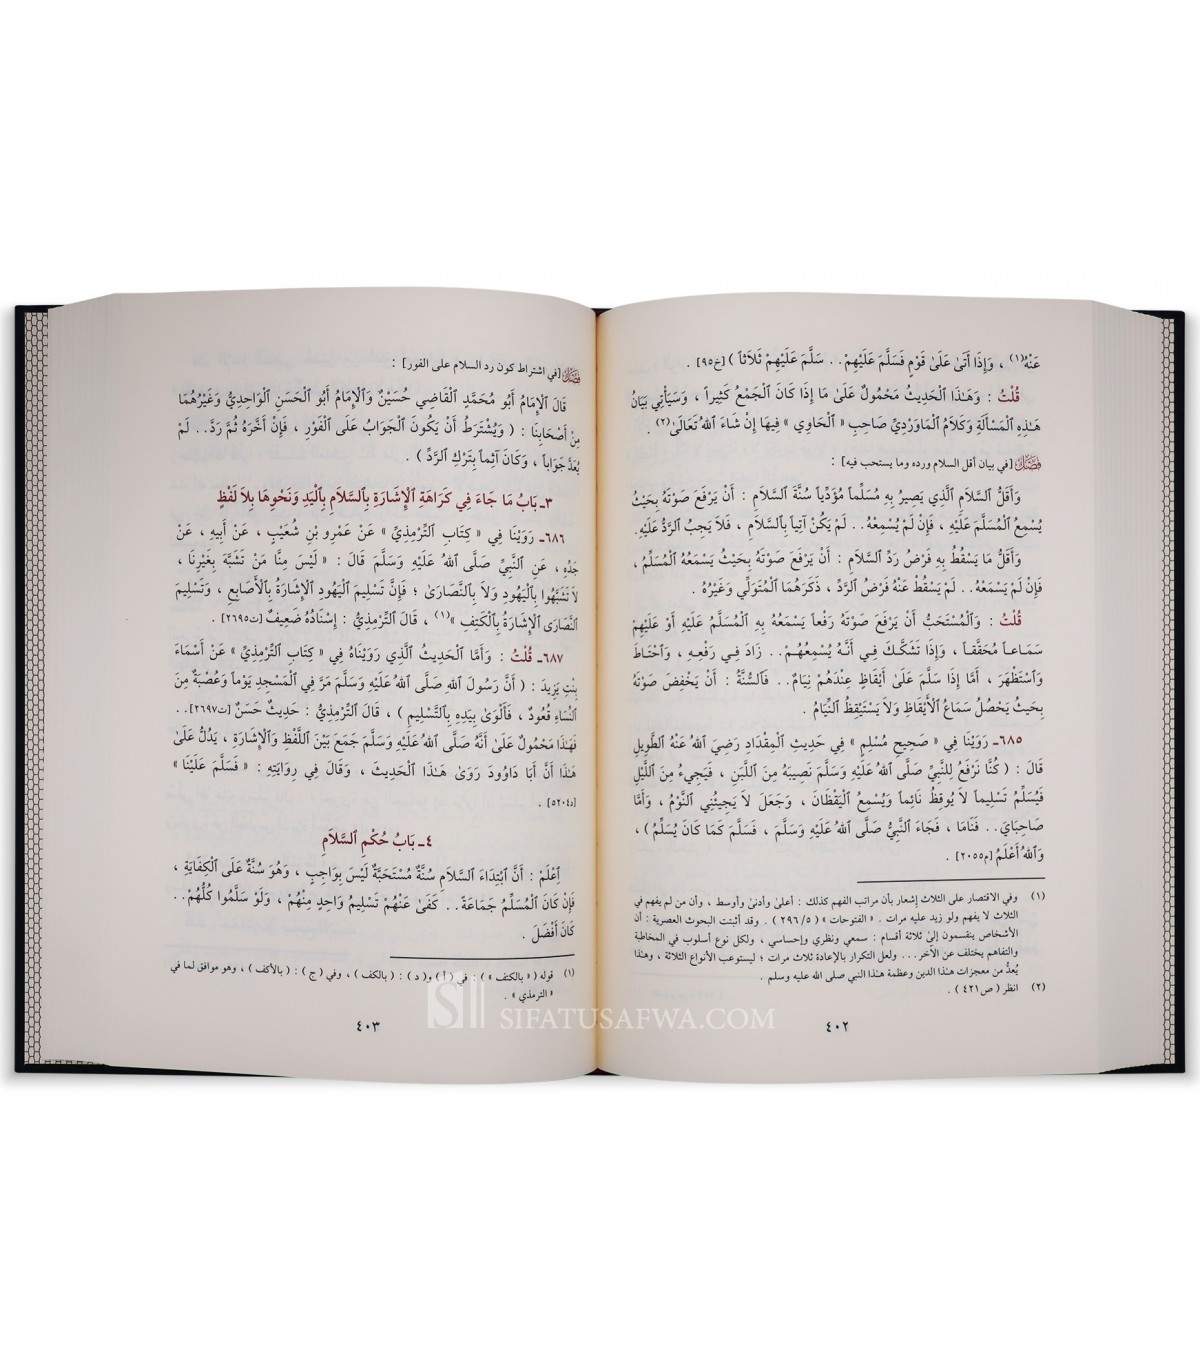 عَنْهُ(١) ، وَإِذَا أَتَىٰ عَلَىٰ قَوْمٍ فَسَلَّمَ عَلَيْهِمْ.. سَلَّمَ عَلَيْهِمْ ثَلَاثاً ) [خ٩٥] .
قُلْتُ : وَهَـٰذَا ٱلْحَدِيثُ مَحْمُولٌ عَلَىٰ مَا إِذَا كَانَ ٱلْجَمْعُ كَثِيراً ، وَسَيَأْتِي بَيَانُ
هَـٰذِهِ ٱلْمَسْأَلَةِ وَكَلَامُ ٱلْمَاوَرْدِيِّ صَاحِبِ « ٱلْحَاوِي » فِيهَا إِنْ شَاءَ ٱللهُ تَعَالَىٰ(٢) .
فَصْلٌ [في بيان أقل السلام ورده وما يستحب فيه] :
وَأَقَلُّ ٱلسَّلَامِ ٱلَّذِي يَصِيرُ بِهِ مُسَلِّماً مُؤَدِّياً سُنَّةَ ٱلسَّلَامِ : أَنْ يَرْفَعَ صَوْتَهُ بِحَيْثُ
يُسْمِعُ ٱلْمُسَلَّمَ عَلَيْهِ ، فَإِنْ لَمْ يُسْمِعْهُ.. لَمْ يَكُنْ آتِياً بِٱلسَّلَامِ ، فَلَا يَجِبُ ٱلرَّدُّ عَلَيْهِ.
وَأَقَلُّ مَا يَسْقُطُ بِهِ فَرْضُ رَدِّ ٱلسَّلَامِ : أَنْ يَرْفَعَ صَوْتَهُ بِحَيْثُ يَسْمَعُهُ ٱلْمُسَلِّمُ ،
فَإِنْ لَمْ يَسْمَعْهُ.. لَمْ يَسْقُطْ عَنْهُ فَرْضُ ٱلرَّدِّ ، ذَكَرَهُمَا ٱلْمُتَوَلِّي وَغَيْرُهُ .
قُلْتُ : وَٱلْمُسْتَحَبُّ أَنْ يَرْفَعَ صَوْتَهُ رَفْعاً يَسْمَعُهُ بِهِ ٱلْمُسَلَّمُ عَلَيْهِ أَوْ عَلَيْهِمْ
سَمَـاعـاً مُحَقَّقـاً ، وَإِذَا تَشَكَّـكَ فِـي أَنَّـهُ يُسْمِعُهُـمْ.. زَادَ فِـي رَفْعِـهِ ، وَٱحْتَـاطَ
وَٱسْتَظْهَرَ ، أَمَّا إِذَا سَلَّمَ عَلَىٰ أَيْقَاظٍ عِنْدَهُمْ نِيَامٌ.. فَٱلسُّنَّةُ : أَنْ يَخْفِضَ صَوْتَهُ
بِحَيْثُ يَحْصُلُ سَمَاعُ ٱلْأَيْقَاظِ وَلَا يَسْتَيْقِظُ ٱلنِّيَامُ .
٦٨٥ـ رَوَيْنَا فِي « صَحِيحِ مُسْلِمٍ » فِي حَدِيثِ ٱلْمِقْدَادِ رَضِيَ ٱللهُ عَنْهُ ٱلطَّوِيلِ
قَالَ : ( كُنَّا نَرْفَعُ لِلنَّبِيِّ صَلَّى ٱللهُ عَلَيْهِ وَسَلَّمَ نَصِيبَهُ مِنَ ٱللَّبَنِ ، فَيَجِيءُ مِنَ ٱللَّيْلِ
فَيُسَلِّمُ تَسْلِيماً لَا يُوقِظُ نَائِماً وَيُسْمِعُ ٱلْيَقْظَانَ ، وَجَعَلَ لَا يَجِيئُنِي ٱلنَّوْمُ ، وَأَمَّا
صَاحِبَايَ.. فَنَامَا ، فَجَاءَ ٱلنَّبِيُّ صَلَّى ٱللهُ عَلَيْهِ وَسَلَّمَ ، فَسَلَّمَ كَمَا كَانَ يُسَلِّمُ ) ،
وَٱللهُ أَعْلَمُ [م٢٠٥٥] .
(١) وفي الاقتصار على الثلاث إشعار بأن مراتب الفهم كذلك : أعلىٰ وأدنىٰ وأوسط ، وأن من لم يفهم في
الثلاث لا يفهم ولو زيد عليه مرات . « الفتوحات » ( ٢٩٦/٥ ) . وقد أثبتت البحوث العصرية : أن
الأشخاص ينقسمون إلى ثلاثة أقسام : سمعي ونظري وإحساسي ، ولكل نوع أسلوب في المخاطبة
والتفاهم يختلف عن الآخر... ولعل التكرار بالإعادة ثلاث مرات ؛ ليستوعب الأنواع الثلاثة ، وهـٰذا
يُعدُّ من معجزات هـٰذا الدين وعظمة هـٰذا النبي صلى الله عليه وسلم .
(٢) انظر ( ص٤٢١ ) .
٤٠٢
فَصْلٌ [في اشتراط كون رد السلام على الفور] :
قَالَ ٱلْإِمَامُ أَبُو مُحَمَّدٍ ٱلْقَاضِي حُسَيْنٌ وَٱلْإِمَامُ أَبُو ٱلْحَسَنِ ٱلْوَاحِدِيُّ وَغَيْرُهُمَا
مِنْ أَصْحَابِنَا : ( وَيُشْتَرَطُ أَنْ يَكُونَ ٱلْجَوَابُ عَلَى ٱلْفَوْرِ ، فَإِنْ أَخَّرَهُ ثُمَّ رَدَّ.. لَمْ
يُعَدَّ جَوَاباً ، وَكَانَ آثِماً بِتَرْكِ ٱلرَّدِّ ) .
٣ـ بَابُ مَا جَاءَ فِي كَرَاهَةِ ٱلْإِشَارَةِ بِٱلسَّلَامِ بِٱلْيَدِ وَنَحْوِهَا بِلَا لَفْظٍ
٦٨٦ـ رَوَيْنَا فِي « كِتَابِ ٱلتِّرْمِذِيِّ » عَنْ عَمْرِو بْنِ شُعَيْبٍ ، عَنْ أَبِيهِ ، عَنْ
جَدِّهِ ، عَنِ ٱلنَّبِيِّ صَلَّى ٱللهُ عَلَيْهِ وَسَلَّمَ قَالَ : « لَيْسَ مِنَّا مَنْ تَشَبَّهَ بِغَيْرِنَا ،
لَا تَشَبَّهُوا بِٱلْيَهُودِ وَلَا بِٱلنَّصَارَىٰ ؛ فَإِنَّ تَسْلِيمَ ٱلْيَهُودِ ٱلْإِشَارَةُ بِٱلْأَصَابِعِ ، وَتَسْلِيمَ
ٱلنَّصَارَى ٱلْإِشَارَةُ بِٱلْكَتِفِ »(١) ، قَالَ ٱلتِّرْمِذِيُّ : إِسْنَادُهُ ضَعِيفٌ [ت٢٦٩٥] .
٦٨٧ـ قُلْتُ : وَأَمَّا ٱلْحَدِيثُ ٱلَّذِي رَوَيْنَاهُ فِي « كِتَابِ ٱلتِّرْمِذِيِّ » عَنْ أَسْمَاءَ
بِنْتِ يَزِيدَ : ( أَنَّ رَسُولَ ٱللهِ صَلَّى ٱللهُ عَلَيْهِ وَسَلَّمَ مَرَّ فِي ٱلْمَسْجِدِ يَوْماً وَعُصْبَةٌ مِنَ
ٱلنِّسَاءِ قُعُودٌ ، فَأَلْوَىٰ بِيَدِهِ بِٱلتَّسْلِيمِ ) ، قَالَ ٱلتِّرْمِذِيُّ : حَدِيثٌ حَسَنٌ [ت٢٦٩٧]..
فَهَـٰذَا مَحْمُولٌ عَلَىٰ أَنَّهُ صَلَّى ٱللهُ عَلَيْهِ وَسَلَّمَ جَمَعَ بَيْنَ ٱللَّفْظِ وَٱلْإِشَارَةِ ، يَدُلُّ عَلَىٰ
هَـٰذَا أَنَّ أَبَا دَاوُودَ رَوَىٰ هَـٰذَا ٱلْحَدِيثَ ، وَقَالَ فِي رِوَايَتِهِ : « فَسَلَّمَ عَلَيْنَا »
[د٥٢٠٤] .
٤ـ بَابُ حُكْمِ ٱلسَّلَامِ
اِعْلَمْ : أَنَّ ٱبْتِدَاءَ ٱلسَّلَامِ سُنَّةٌ مُسْتَحَبَّةٌ لَيْسَ بِوَاجِبٍ ، وَهُوَ سُنَّةٌ عَلَى ٱلْكِفَايَةِ ،
فَإِنْ كَانَ ٱلْمُسَلِّمُ جَمَاعَةً.. كَفَىٰ عَنْهُمْ تَسْلِيمُ وَاحِدٍ مِنْهُمْ ، وَلَوْ سَلَّمُوا كُلُّهُمْ..
كَانَ أَفْضَلَ .
(١) قوله ( « بالكتف » ) : في ( أ ) و( د ) : ( بالكف ) ، وفي ( ج ) : ( بالأكف ) ، وهو موافق لما في
« الترمذي » .
٤٠٣
SIFATUSAFWA.COM